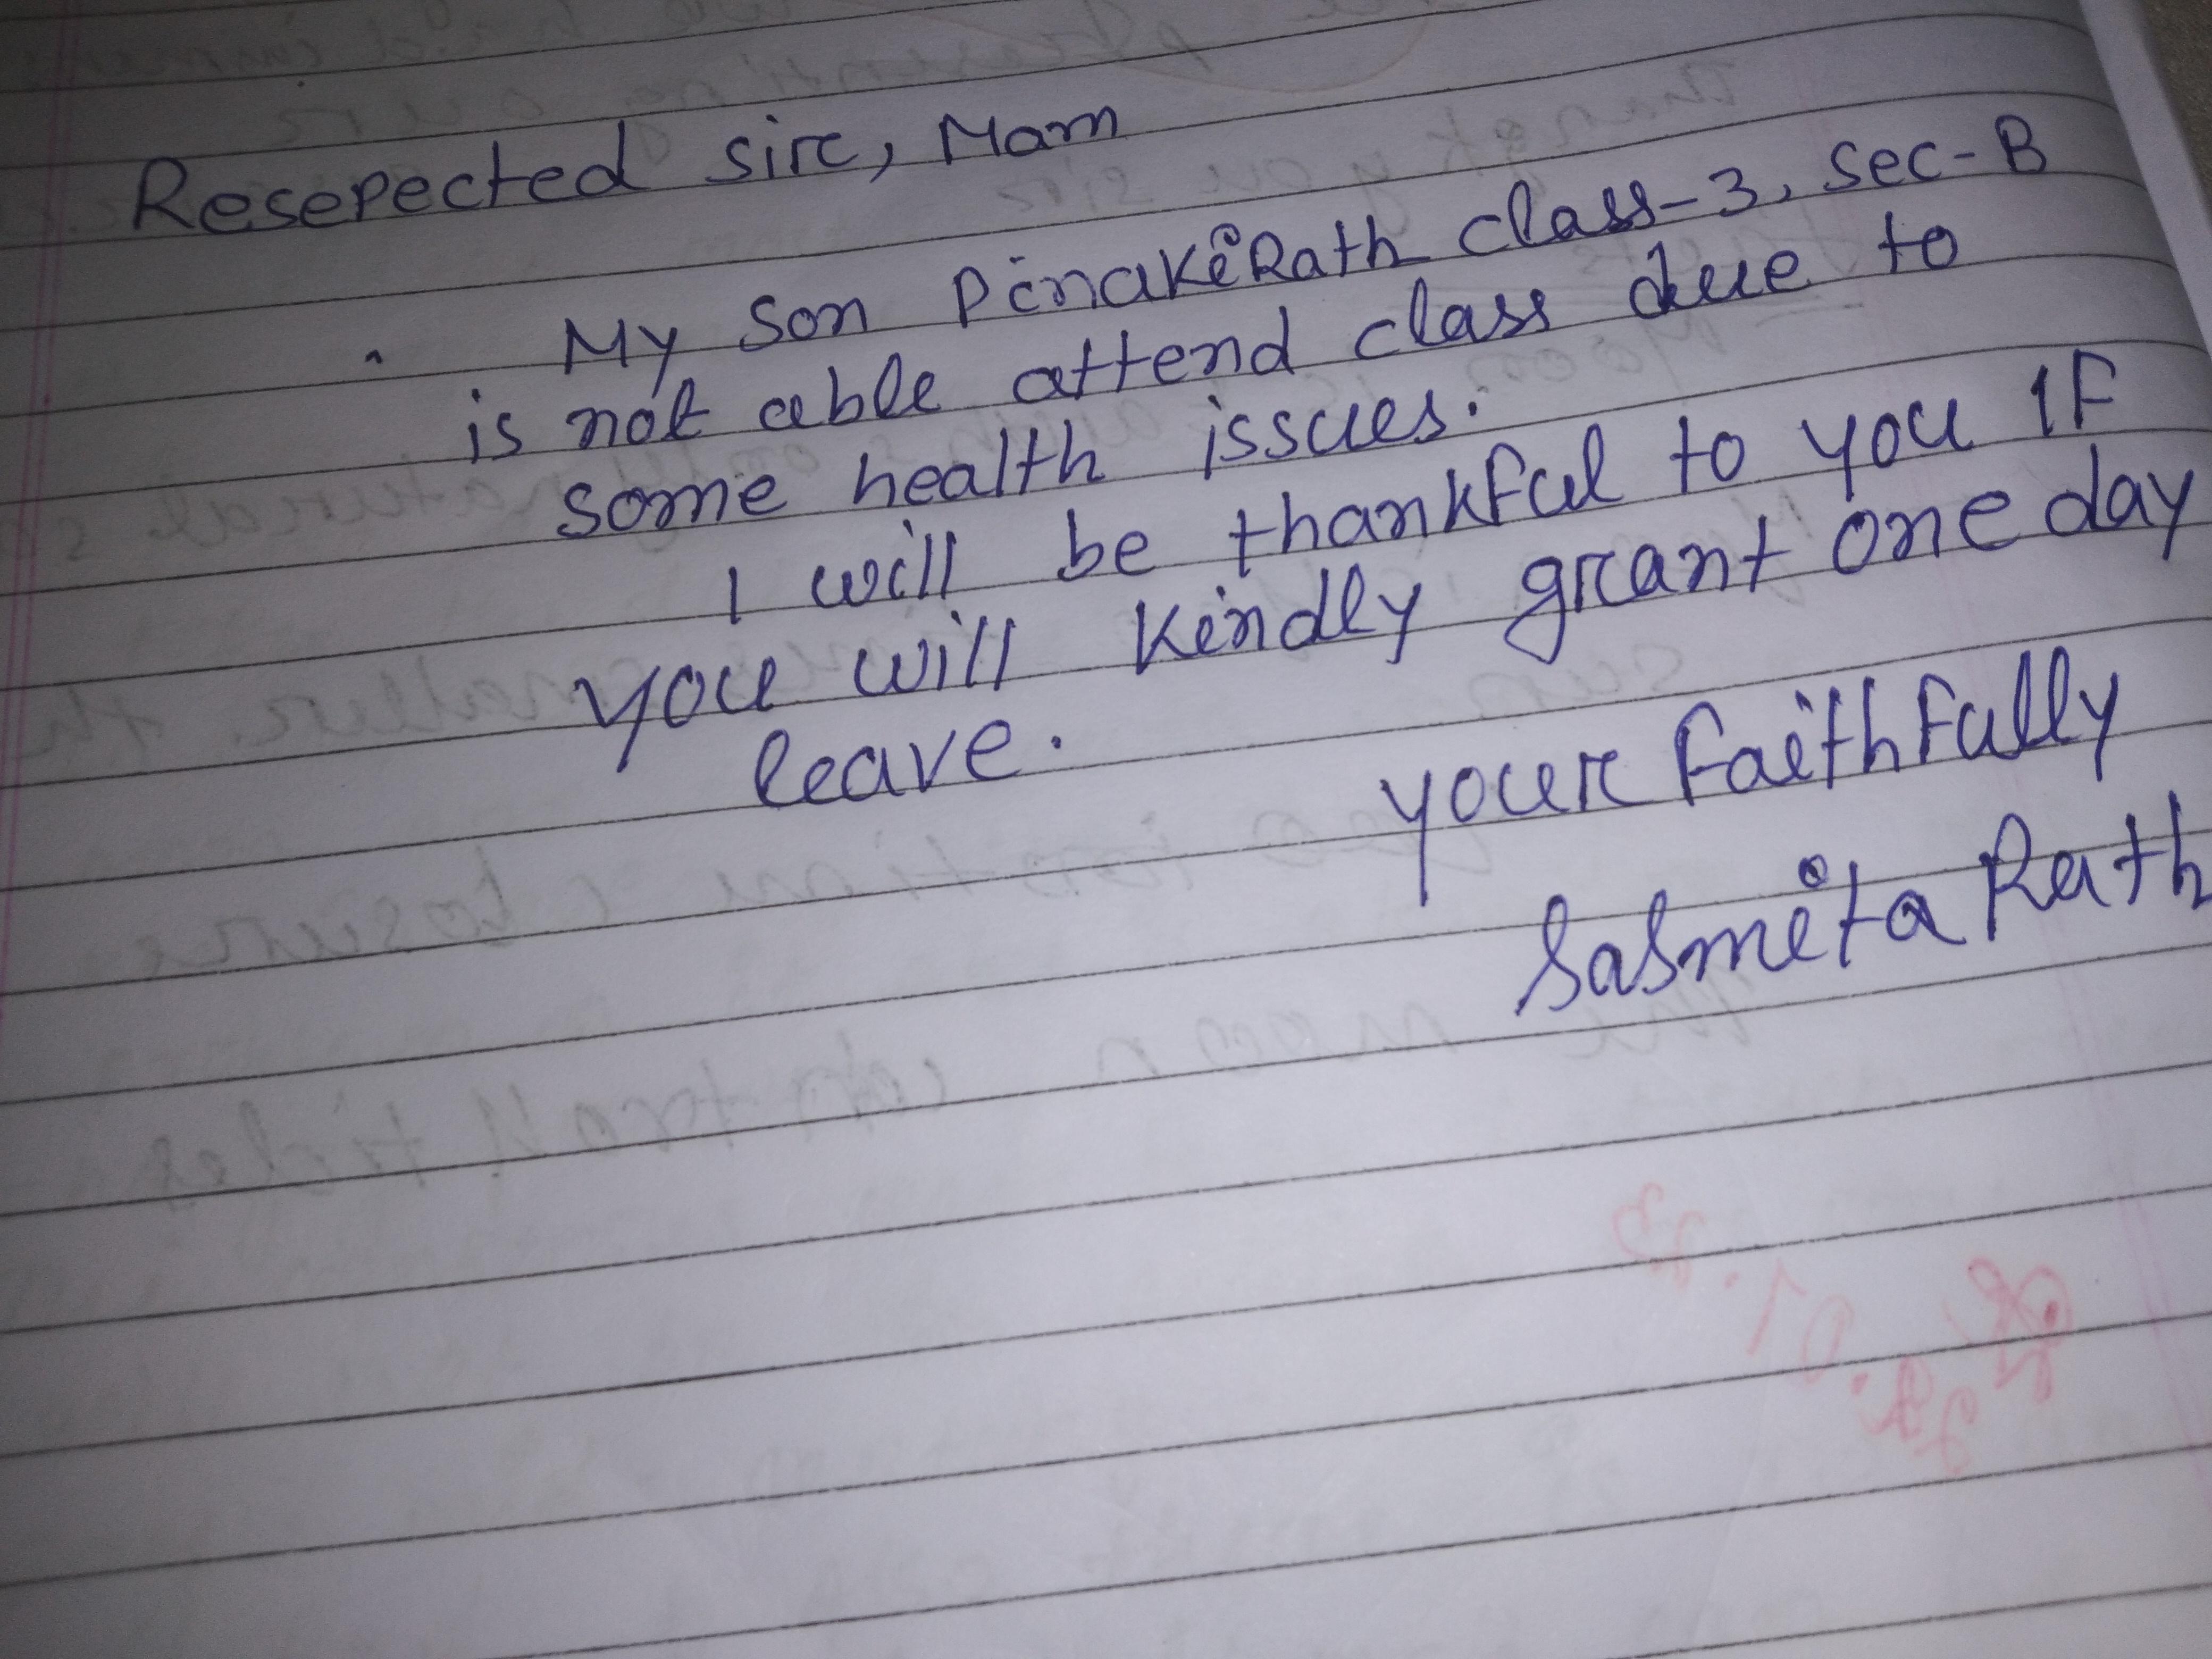 Resepected sir, Mam
My son Pinaki Rath class-3, sec-B
is not able attend class due to
some health issues.
I will be thankful to you IF
you will kindly grant one day
leave.
your faithfully
Sasmita Rath